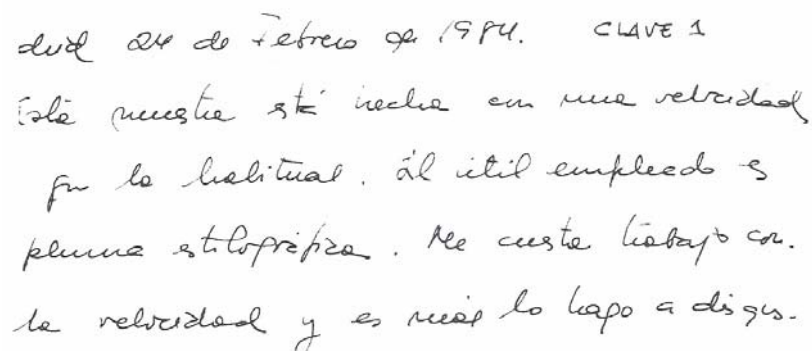 drid 24 de Febrero de 1984. CLAVE 1
Esta muestra está hecha con una velocidad
que la habitual. El útil empleado es
pluma estilográfica. Me cuesta trabajo con.
la velocidad y es más lo hago a disgus.